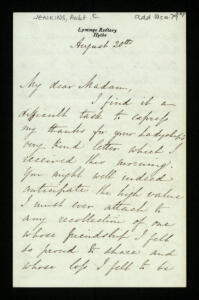 JENKINS, Robt. C
Lyminge Rectory
Hythe
August 20th
My dear Madam,
I find it a
difficult task to express
my thanks for your Ladyship's
very kind letter which I
received this morning.
You might well indeed
anticipate the high value
I must ever attach to
any recollection of one
whose friendship I felt
so proud to share and
whose loss I felt to be